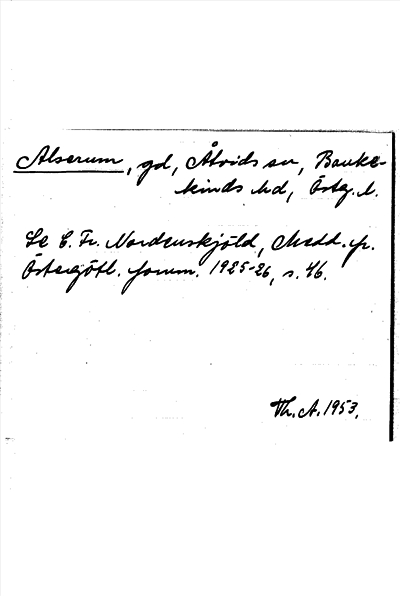 Alserum, gd, Åtvids sn, Banke-
kinds hd, Östg. l.
Se C. Fr. Nordenskjöld, Medd. fr.
Östergötl. fornm. 1925-26, s. 46.
Th. A. 1953.